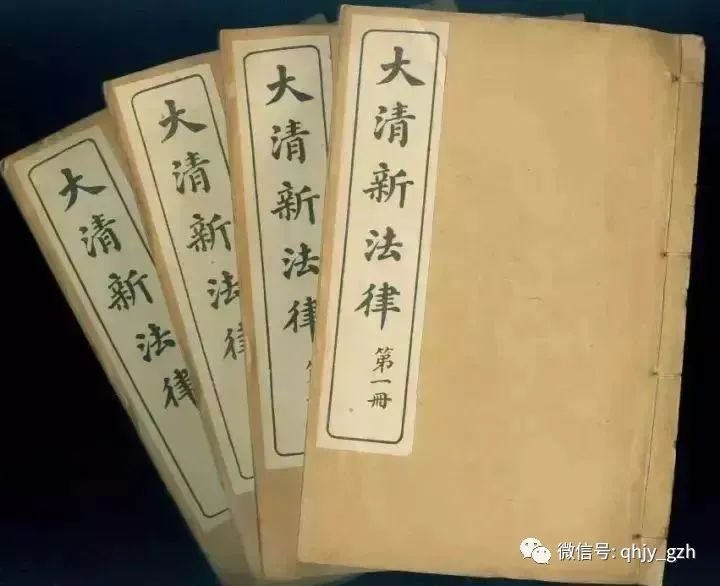 大清新法律
第一冊
大清新法律
大清新法律
大清新法律
微信号: qhjy_gzh